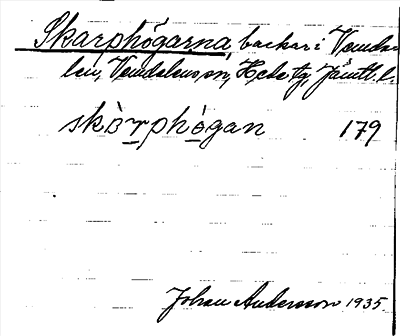 Skarphögarna, backar i Vemda-
len, Vemdalens sn, Hede tg, Jämtl. l.
skòrphògan 179
Johan Andersson 1935